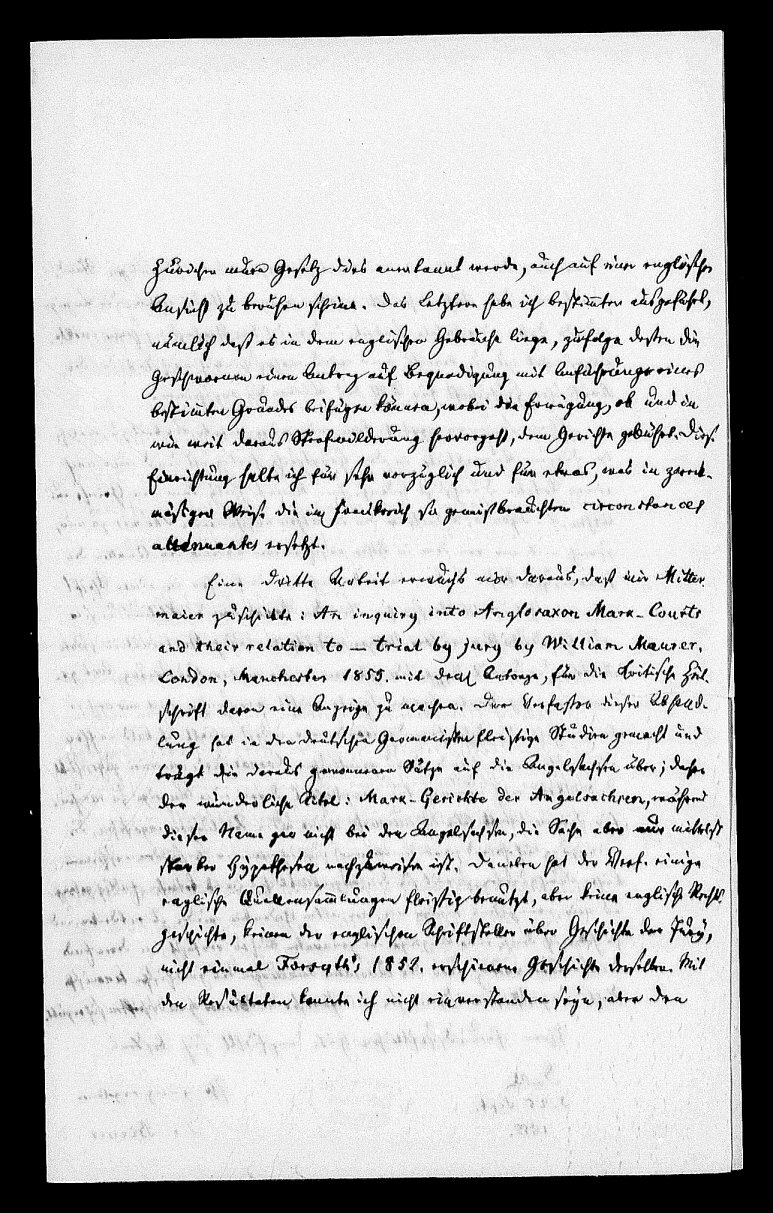 Zürichen neuen Gesetz dies anerkannt werde, auch auf einer englischen
Ansicht zu beruhen scheine. Das Letztere habe ich bestimter ausgeführt,
nämlich daß es in dem englischen Gebrauche liege, zufolge dessen die
Geschwornen einen Antrag auf Begnadigung mit Anführung eines
bestimten Grundes beifügen können, wobei die Erwägung, ob und in
wie weit daraus Strafmilderung hervorgeht, dem Gerichte gebührt. Diese
Einrichtung halte ich für sehr vorzüglich und für etwas, was in zweck-
mäßiger Weise die in Frankreich so gemißbrauchten circonstances
attenuantes ersetzt.
Eine dritte Arbeit erwuchs mir daraus, daß mir Mitter-
maier zuschickte: An inquiry into Anglosaxon Mark-Courts
and their relation to — trial by jury by William Maurer.
London, Manchester 1855. mit dem Antrage, für die kritische Zeit-
schrift davon eine Anzeige zu machen. Der Verfasser dieser Abhand-
lung hat in den deutschen Germanisten fleißige Studien gemacht und
trägt die daraus gewonnenen Sätze auf die Angelsachsen über; daher
der wunderliche Titel: Mark-Gerichte der Angelsachsen, während
dieser Name gar nicht bei den Angelsachsen, die Sache aber nur mittelst
starker Hypothesen nachzuweisen ist. Daneben hat der Verf. einige
englische Quellensammlungen fleißig benutzt, aber keine englische Rechts-
geschichte, keinen der englischen Schriftsteller über Geschichte der Jury,
nicht einmal Forsyth's 1852. erschienene Geschichte derselben. Mit
den Resultaten konnte ich nicht einverstanden seyn, aber den